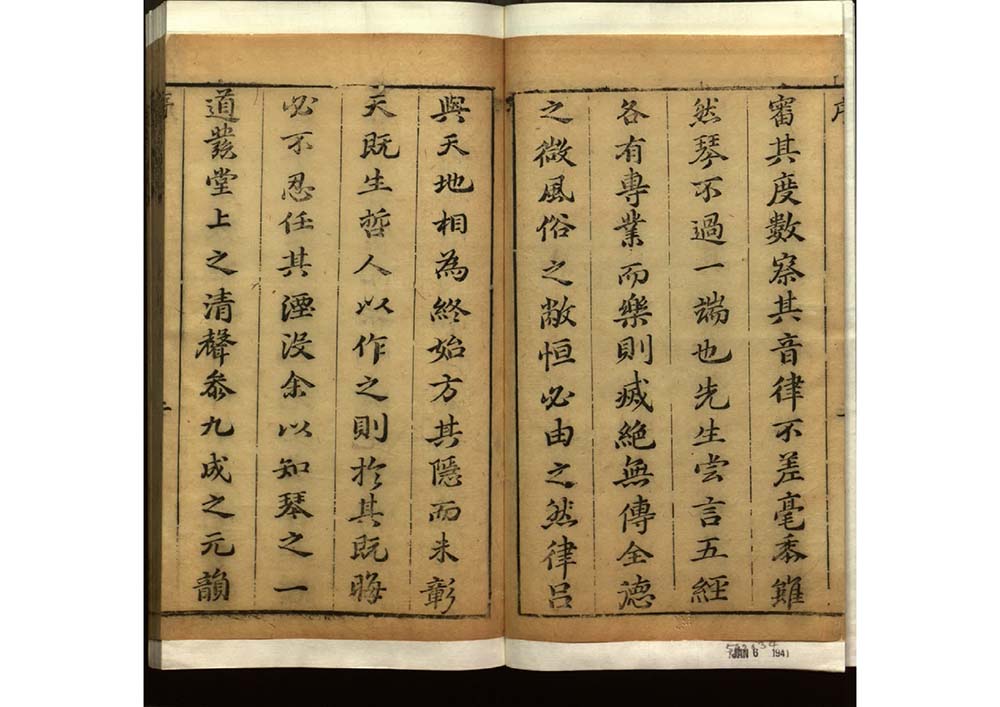 審其度數察其音律不差毫黍雖
然琴不過一端也先生嘗言五經
各有專業而樂則滅絶無傳全德
之微風俗之敝恒必由之然律呂
與天地相為終始方其隱而未彰
天既生哲人以作之則於其既晦
必不忍任其湮没余以知琴之一
道發堂上之清聲叅九成之元韻
序
JAN 6 1941